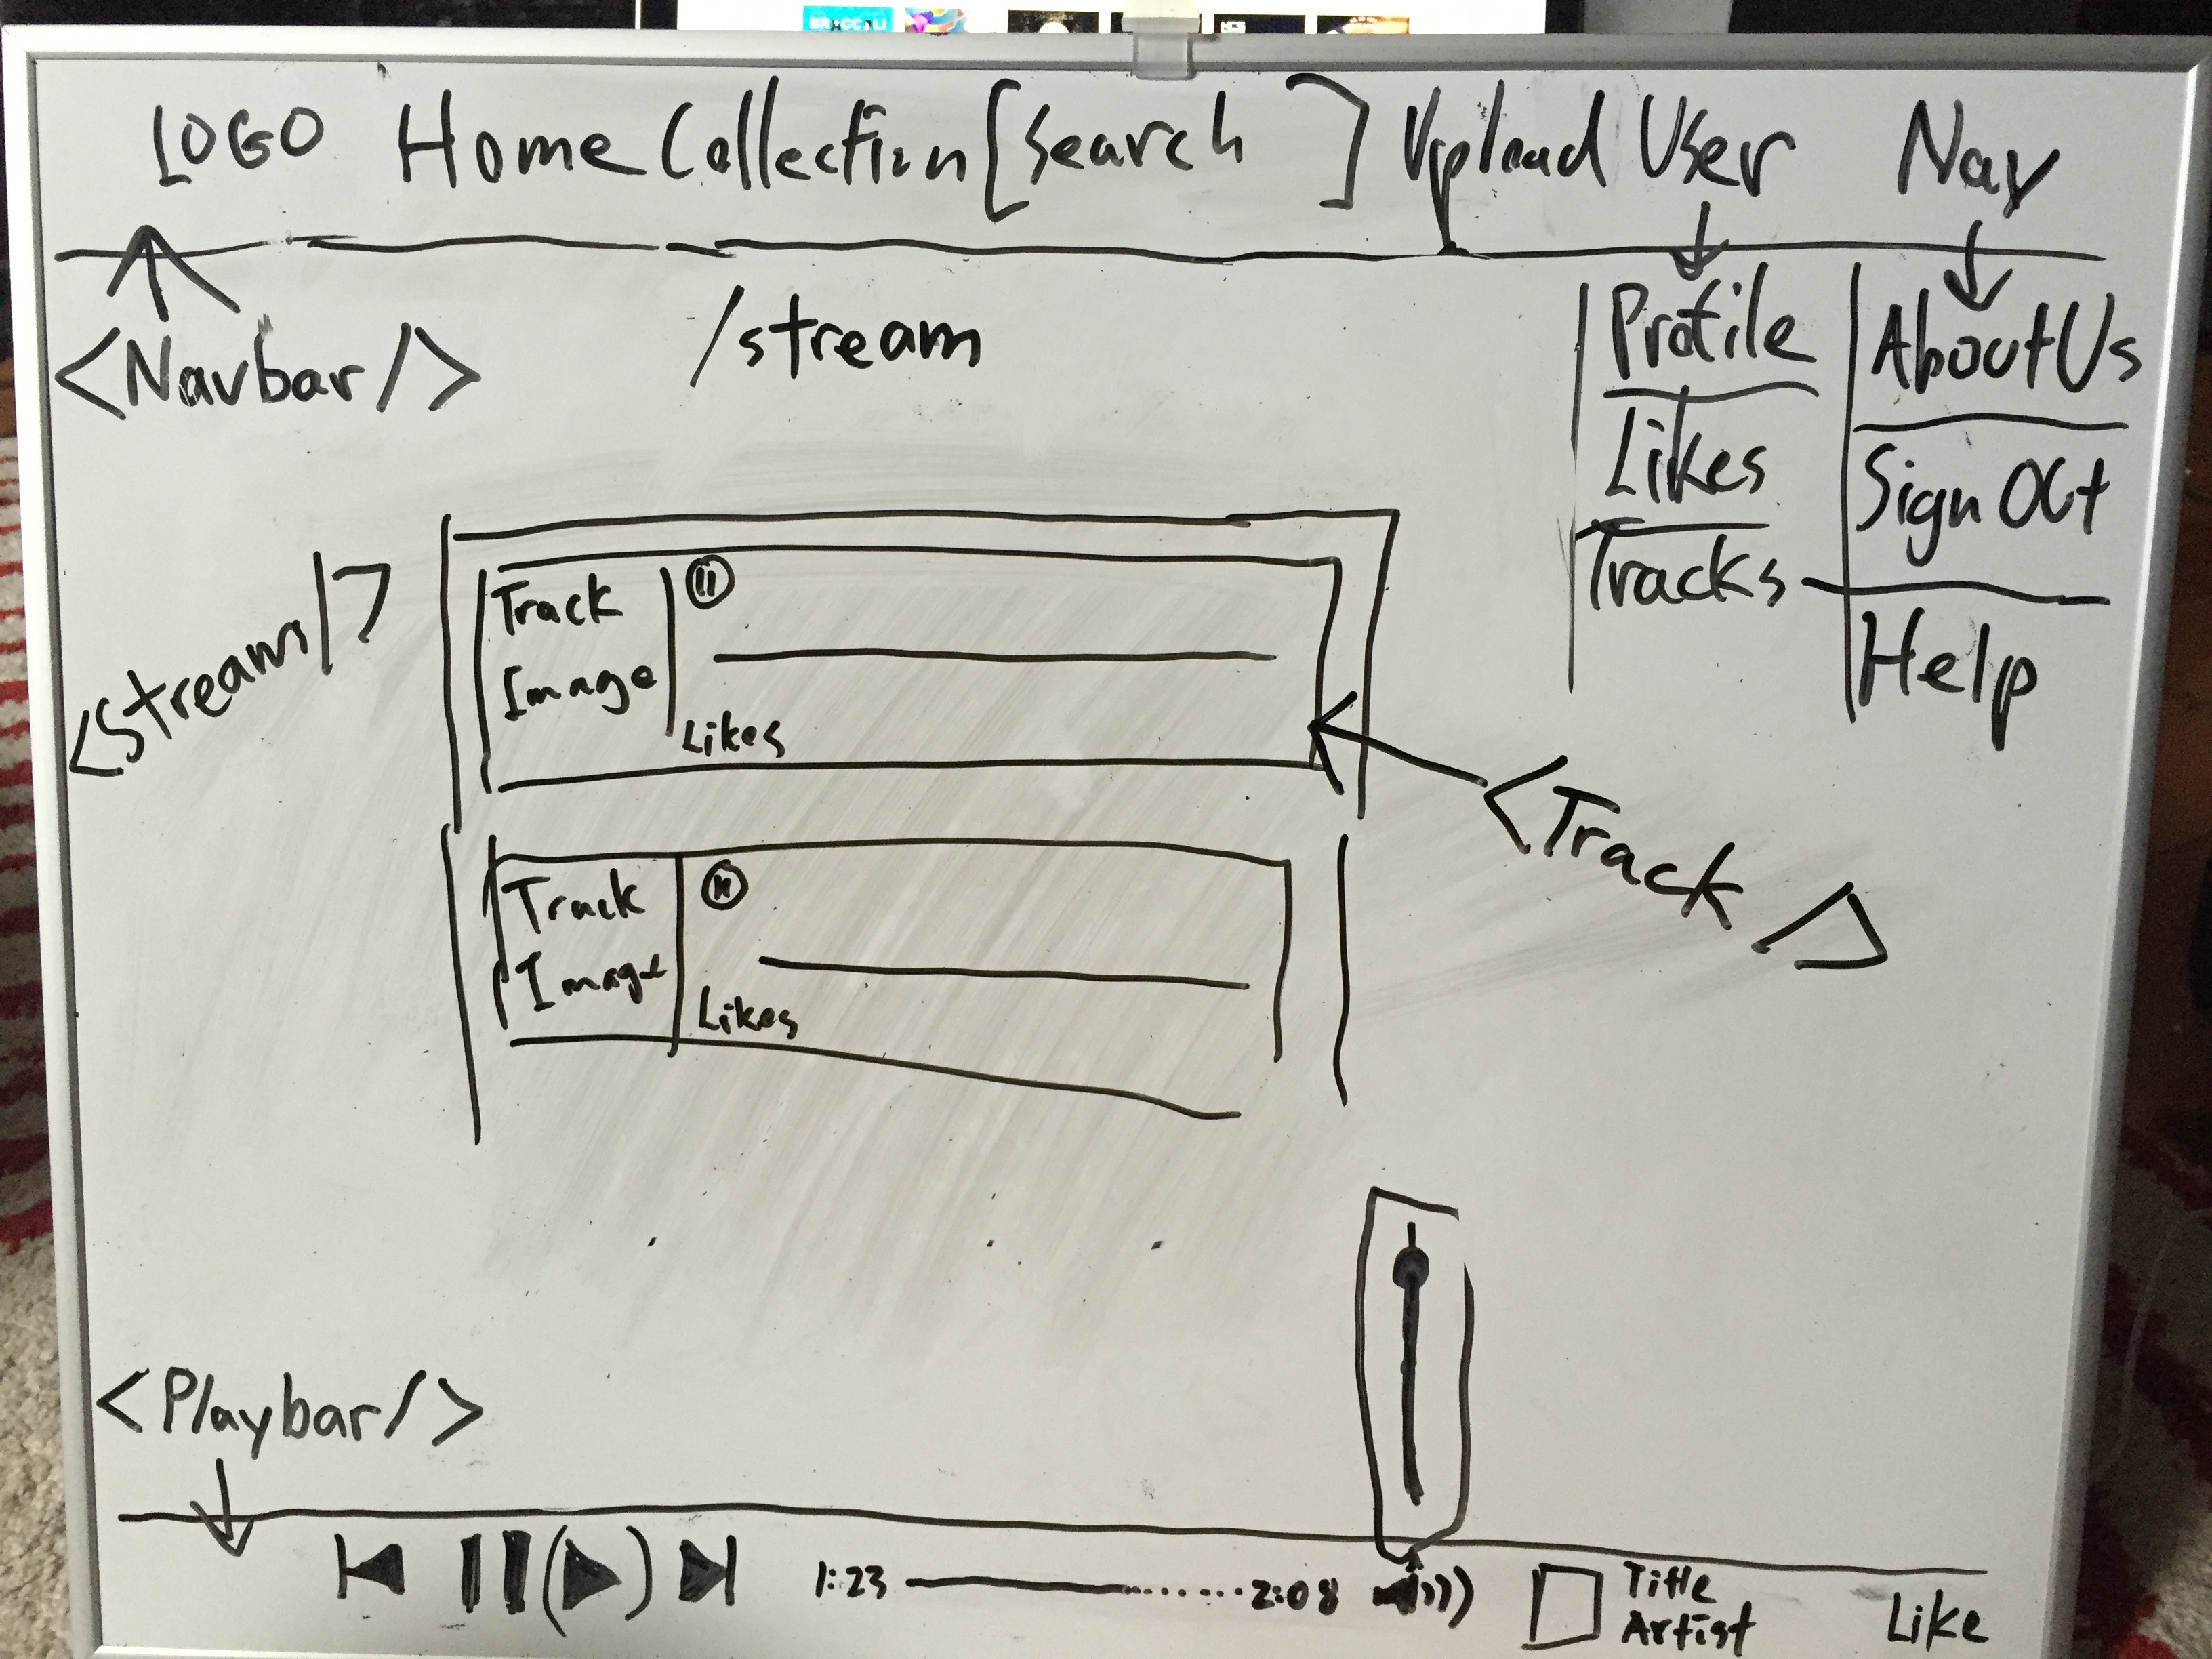 BROCCOLI
NCS
LOGO Home Collection [Search ] Upload User Nav
<Navbar/>
/stream
Profile
Likes
Tracks
About Us
Sign Out
Help
<Stream/>
Track
Image
Likes
<Track />
Track
Image
Likes
<Playbar/>
1:23
2:08
Title
Artist
Like